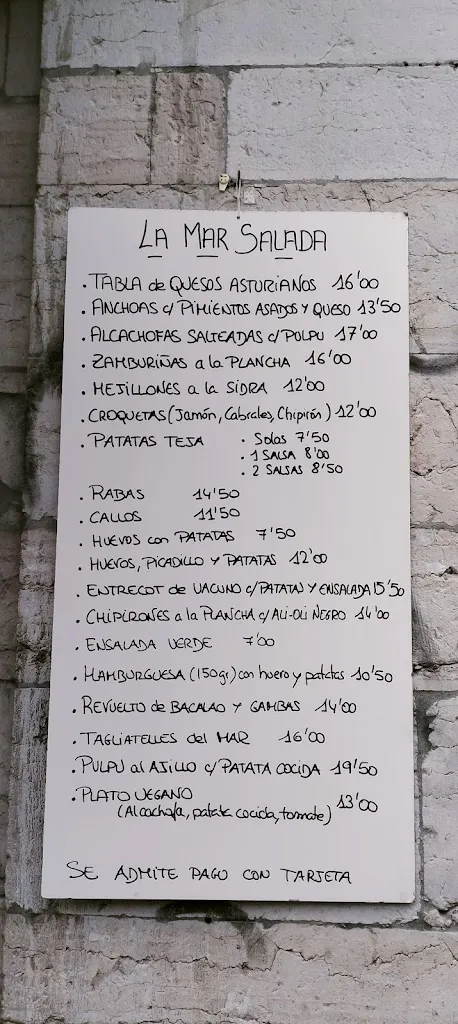 LA MAR SALADA
. TABLA de QUESOS ASTURIANOS 16'00
. ANCHOAS c/ PIMIENTOS ASADOS Y QUESO 13'50
. ALCACHOFAS SALTEADAS c/ PULPU 17'00
. ZAMBURIÑAS a la PLANCHA 16'00
. MEJILLONES a la SIDRA 12'00
. CROQUETAS (Jamón, Cabrales, Chipirón) 12'00
. PATATAS TEJA . Solas 7'50
. 1 SALSA 8'00
. 2 SALSAS 8'50
. RABAS 14'50
. CALLOS 11'50
. HUEVOS con PATATAS 7'50
. HUEVOS, PICADILLO Y PATATAS 12'00
. ENTRECOT de VACUNO c/ PATATAS Y ENSALADA 15'50
. CHIPIRONES a la PLANCHA c/ ALI-OLI NEGRO 14'00
. ENSALADA VERDE 7'00
. HAMBURGUESA (150gr) con huevo y patatas 10'50
. REVUELTO de BACALAO Y GAMBAS 14'00
. TAGLIATELLES del MAR 16'00
. PULPU al AJILLO c/ PATATA COCIDA 19'50
. PLATO VEGANO 13'00
(Alcachofa, patata cocida, tomate)
SE ADMITE PAGO CON TARJETA